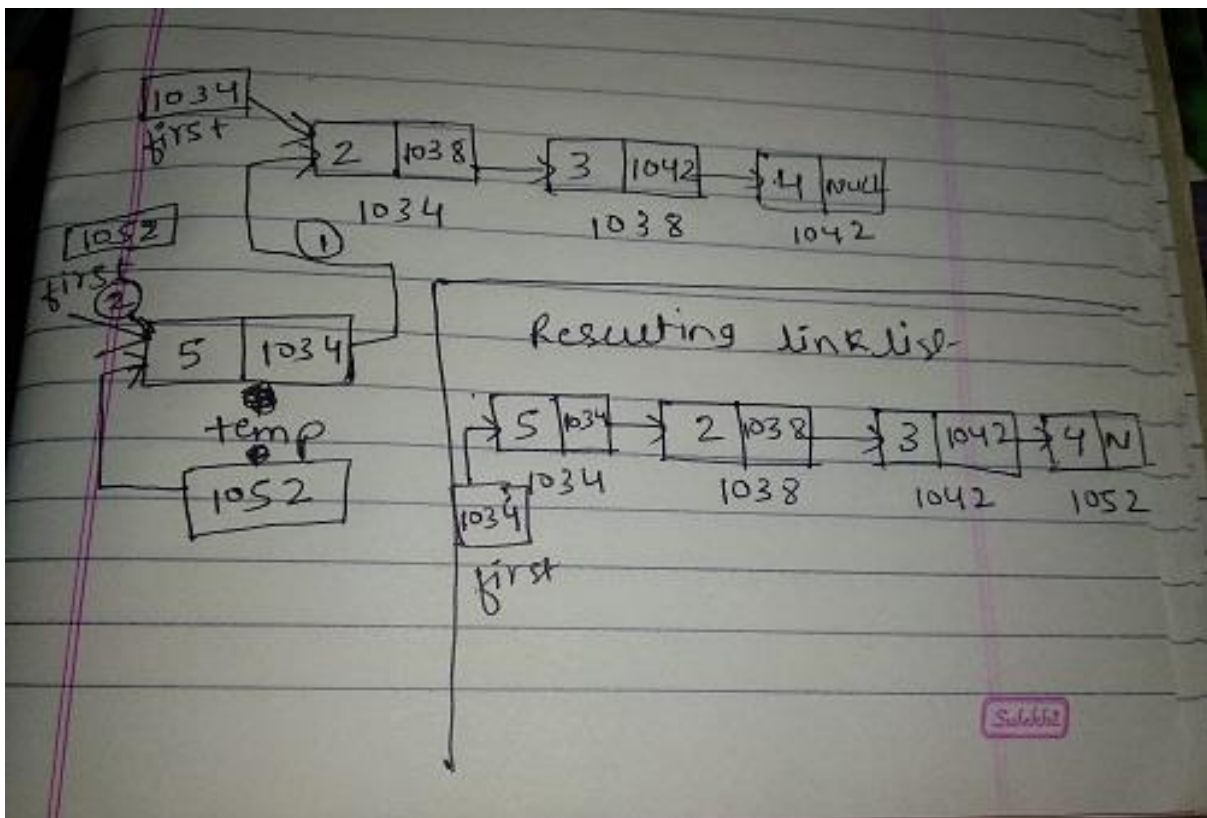 1034
first
2 1038
3 1042
4 Null
1034
1038
1042
1
1052
first
2
5 1034
temp
1052
Resulting link list
5 1034
2 1038
3 1042
4 N
1034
1038
1042
1052
1034
first